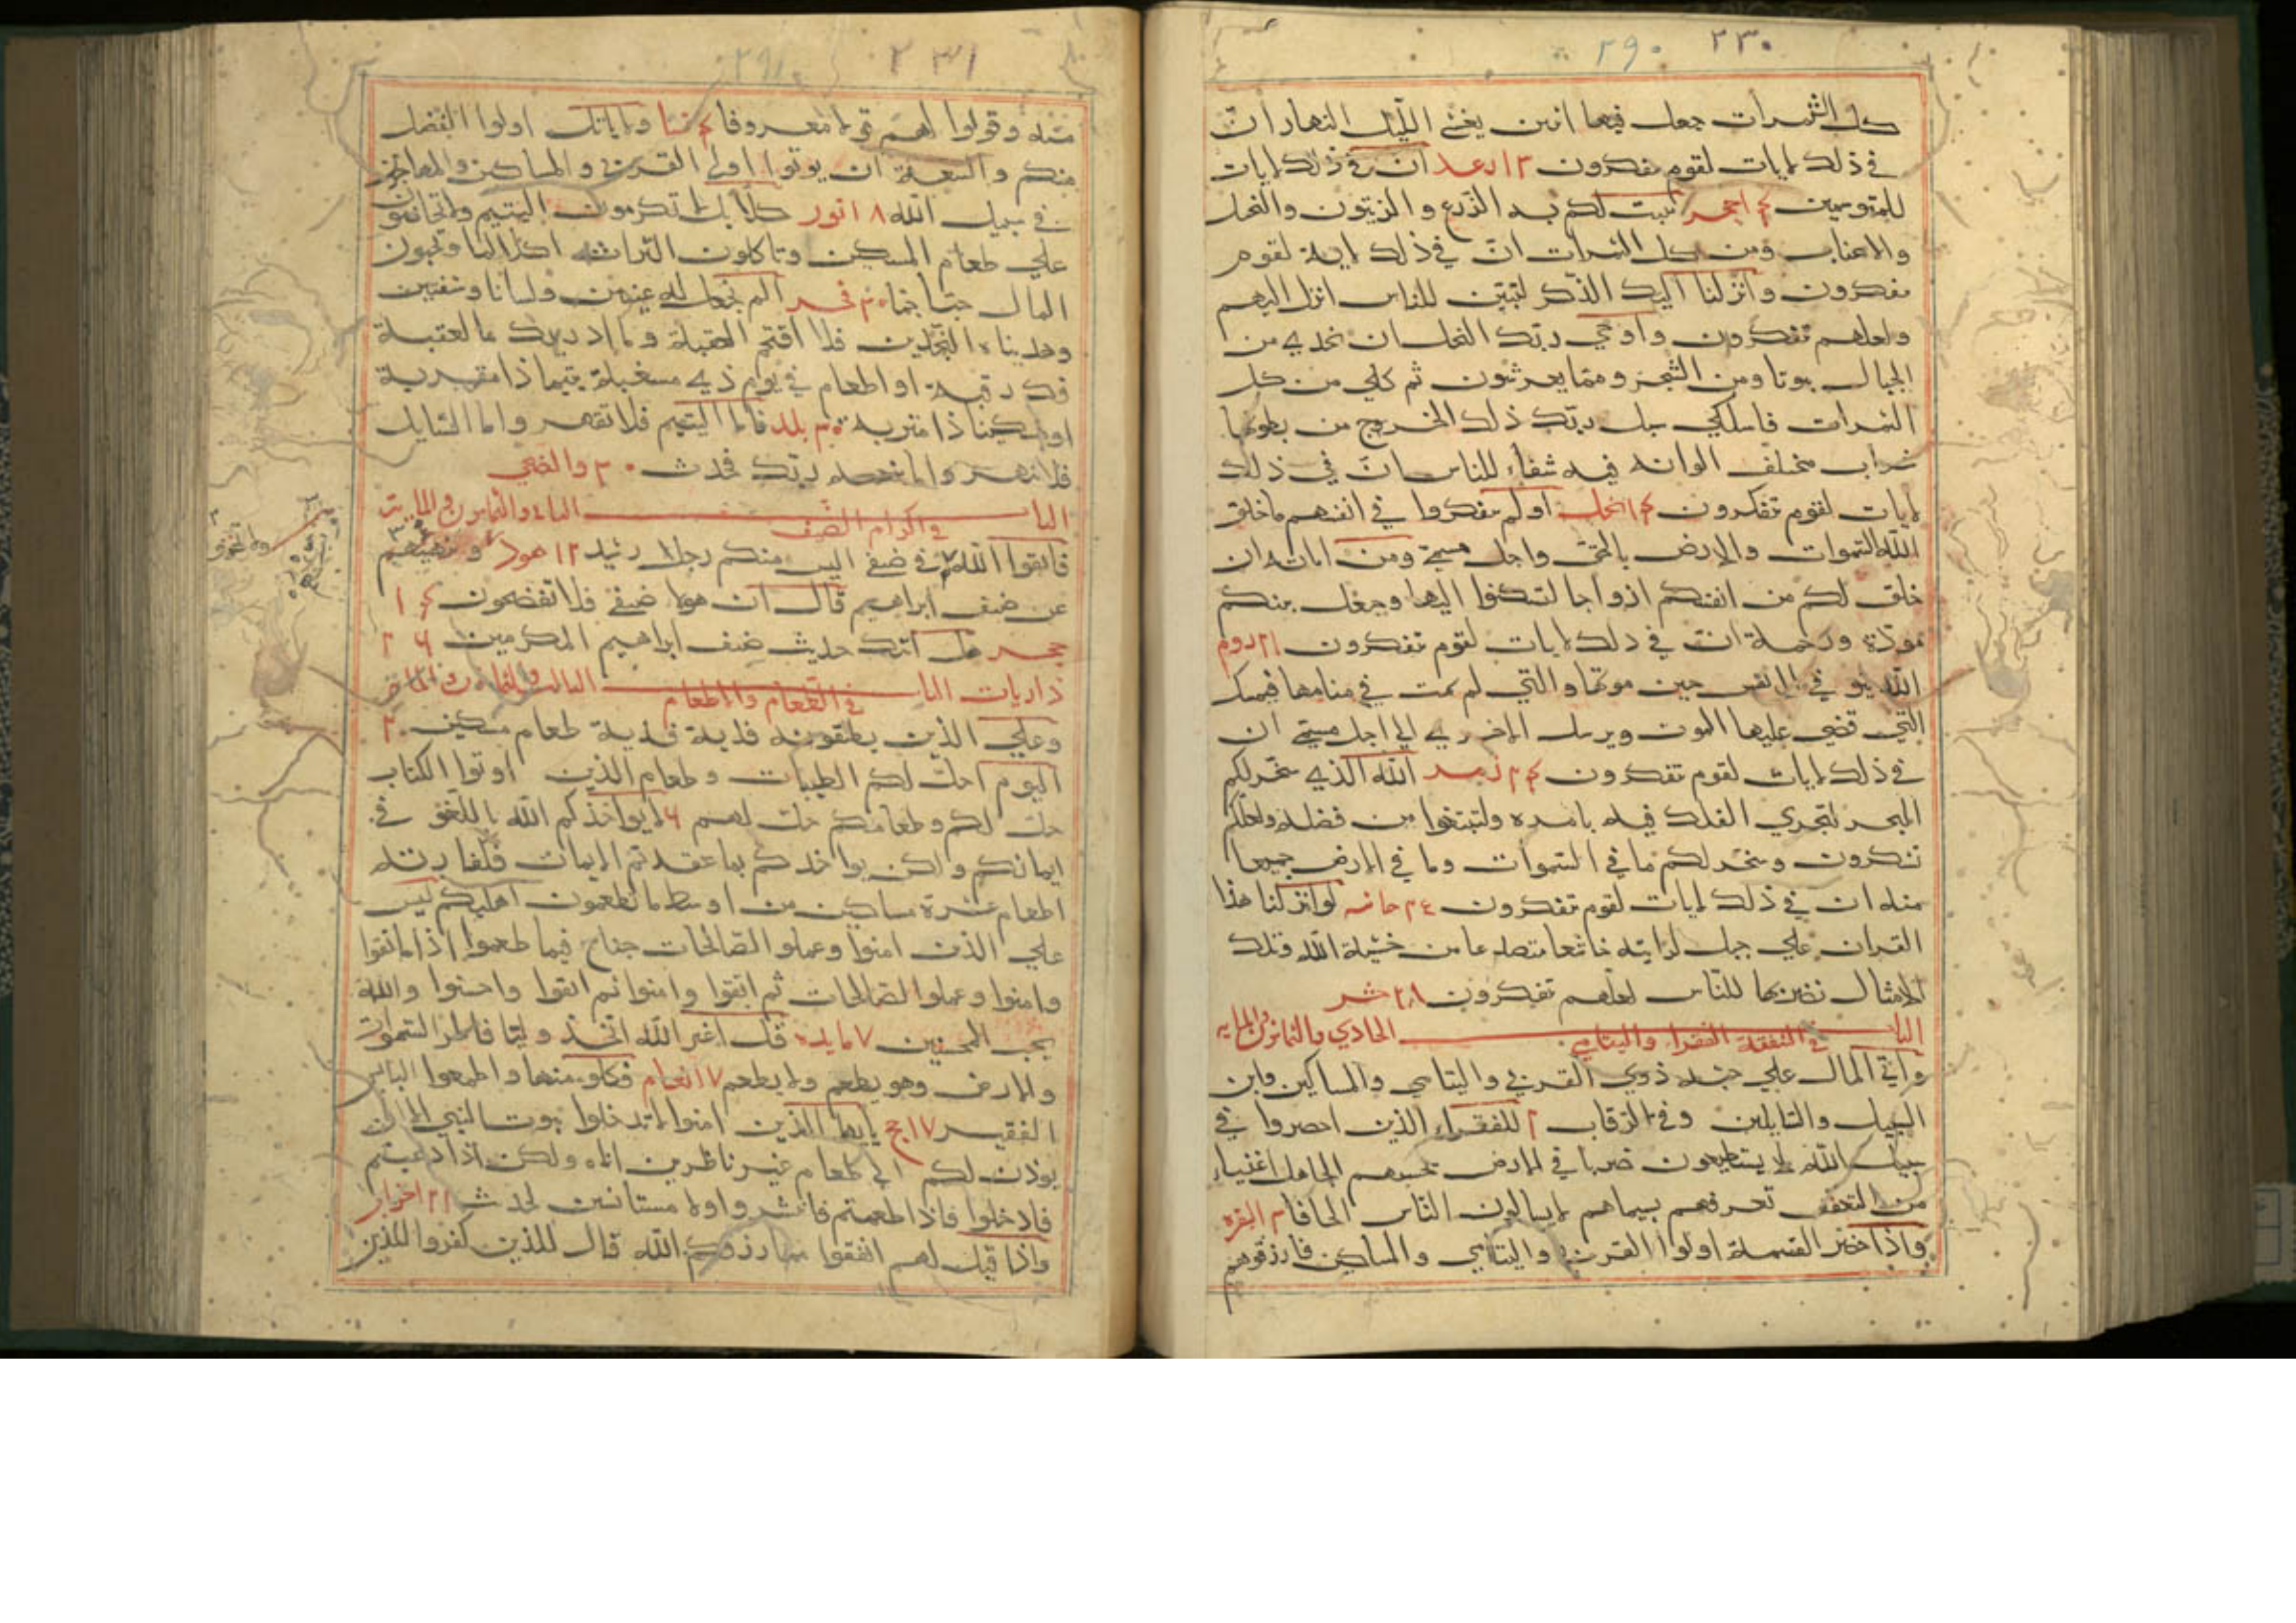 ٢٣٠ ٢٩٠
كل الثمرات جعل فيها اثنين يغشي الليل النهار ان
في ذلك لايات لقوم يتفكرون ١٣ رعد ان في ذلك لايات
للمتوسمين ١٤ حجر ينبت لكم به الزرع والزيتون والنخل
والاعناب ومن كل الثمرات ان في ذلك لاية لقوم
يتفكرون وانزلنا اليك الذكر لتبين للناس انزل اليهم
ولعلهم تتفكرون واوحي ربك النحل ان تخذي من
الجبال بيوتا ومن الشجر ومما يعرشون ثم كلي من كل
الثمرات فاسلكي سبل ربك ذلك الخرج من بطونها
شراب مختلف الوانه فيه شفاء للناس ان في ذلك
لايات لقوم تتفكرون ١٤ نحل اولم يتفكروا في انفسهم ما خلق
الله السموات والارض بالحق واجل مسمي ومن اياته ان
خلق لكم من انفسكم ازواجا لتسكنوا اليها وجعل بينكم
مودة ورحمة ان في ذلك لايات لقوم تتفكرون ٢١ روم
الله يتوفي الانفس حين موتها والتي لم تمت في منامها فيمسك
التي قضي عليها الموت ويرسل الاخري الي اجل مسمي ان
في ذلك لايات لقوم تتفكرون ٢٤ زمر الله الذي سخر لكم
البحر لتجري الفلك فيه بامره ولتبتغوا من فضله ولعلكم
تشكرون وسخر لكم ما في السموات وما في الارض جميعا
منه ان في ذلك لايات لقوم تتفكرون ٢٤ جاثيه لو انزلنا هذا
القران علي جبل لرايته خاشعا متصدعا من خشية الله وتلك
الامثال نضربها للناس لعلهم تتفكرون ٢٨ حشر
الباب الحادي والثمانون والمايه
في النفقة الفقراء واليتامي
واتي المال علي حبه ذوي القربي واليتامي والمساكين وابن
السبيل والسايلين وفي الرقاب ٢ للفقراء الذين احصروا في
سبيل الله لا يستطيعون ضربا في الارض يحسبهم الجاهل اغنياء
من التعفف تعرفهم بسيماهم لا يسالون الناس الحافا ٣ البقره
واذا حضر القسمة اولوا القربي واليتامي والمساكين فارزقوهم
٢٣١ ٢٩١
منه وقولوا لهم قولا معروفا ٤ نسا ولا ياتل اولوا الفضل
منكم والسعة ان يوتوا اولي القربي والمساكين والمهاجرين
في سبيل الله ١٨ نور كلا بل لا تكرمون اليتيم ولا تحاضون
علي طعام المسكين وتاكلون التراث اكلا لما وتحبون
المال حبا جما ٣٠ فجر الم نجعل له عينين ولسانا وشفتين
وهديناه النجدين فلا اقتحم العقبة وما ادريك ما العقبة
فك رقبة او اطعام في يوم ذي مسغبة يتيما ذا مقربة
او مسكينا ذا متربة ٣٠ بلد فاما اليتيم فلا تقهر واما السايل
فلا تنهر واما بنعمة ربك فحدث ٣٠ والضحي
الباب الثاني والثمانون والمايه
في اكرام الضيف
فاتقوا الله في ضيفي اليس منكم رجل رشيد ١٢ هود ونبئهم
عن ضيف ابراهيم قال ان هولا ضيفي فلا تفضحون ١٤
حجر هل اتك حديث ضيف ابراهيم المكرمين ٢٦
ذاريات الباب الثالث والثمانون والمايه
في الطعام والاطعام
وعلي الذين يطيقونه فدية فدية طعام مسكين ٢
اليوم احل لكم الطيبات وطعام الذين اوتوا الكتاب
حل لكم وطعامكم حل لهم ٦ لا يواخذكم الله باللغو في
ايمانكم ولكن يواخذكم بما عقدتم الايمان فكفارته
اطعام عشرة مساكين من اوسط ما تطعمون اهليكم ليس
علي الذين امنوا وعملوا الصالحات جناح فيما طعموا اذا ما اتقوا
وامنوا وعملوا الصالحات ثم اتقوا وامنوا ثم اتقوا واحسنوا والله
يحب المحسنين ٧ مايده قل اغير الله اتخذ وليا فاطر السموات
والارض وهو يطعم ولا يطعم ٧ انعام فكلوا منها واطعموا البائس
الفقير ١٧ حج يا ايها الذين امنوا لا تدخلوا بيوت النبي الا ان
يوذن لكم الي طعام غير ناظرين اناه ولكن اذا دعيتم
فادخلوا فاذا طعمتم فانتشروا ولا مستانسين لحديث ٢٢ احزاب
واذا قيل لهم انفقوا مما رزقكم الله قال للذين كفروا للذين